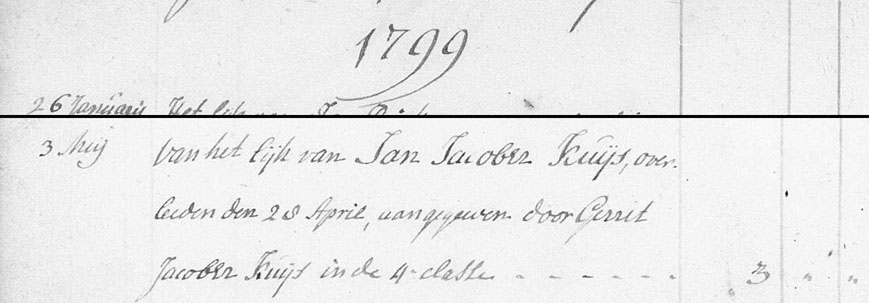 1799
26 Januarij Het lijk van
3 Meij van het lijk van Jan Jacobsz Kuijs, over
leeden den 28 April, aangegeven door Gerrit
Jacobsz Kuijs in de 4e classe - - - - - - „ 3 „ „